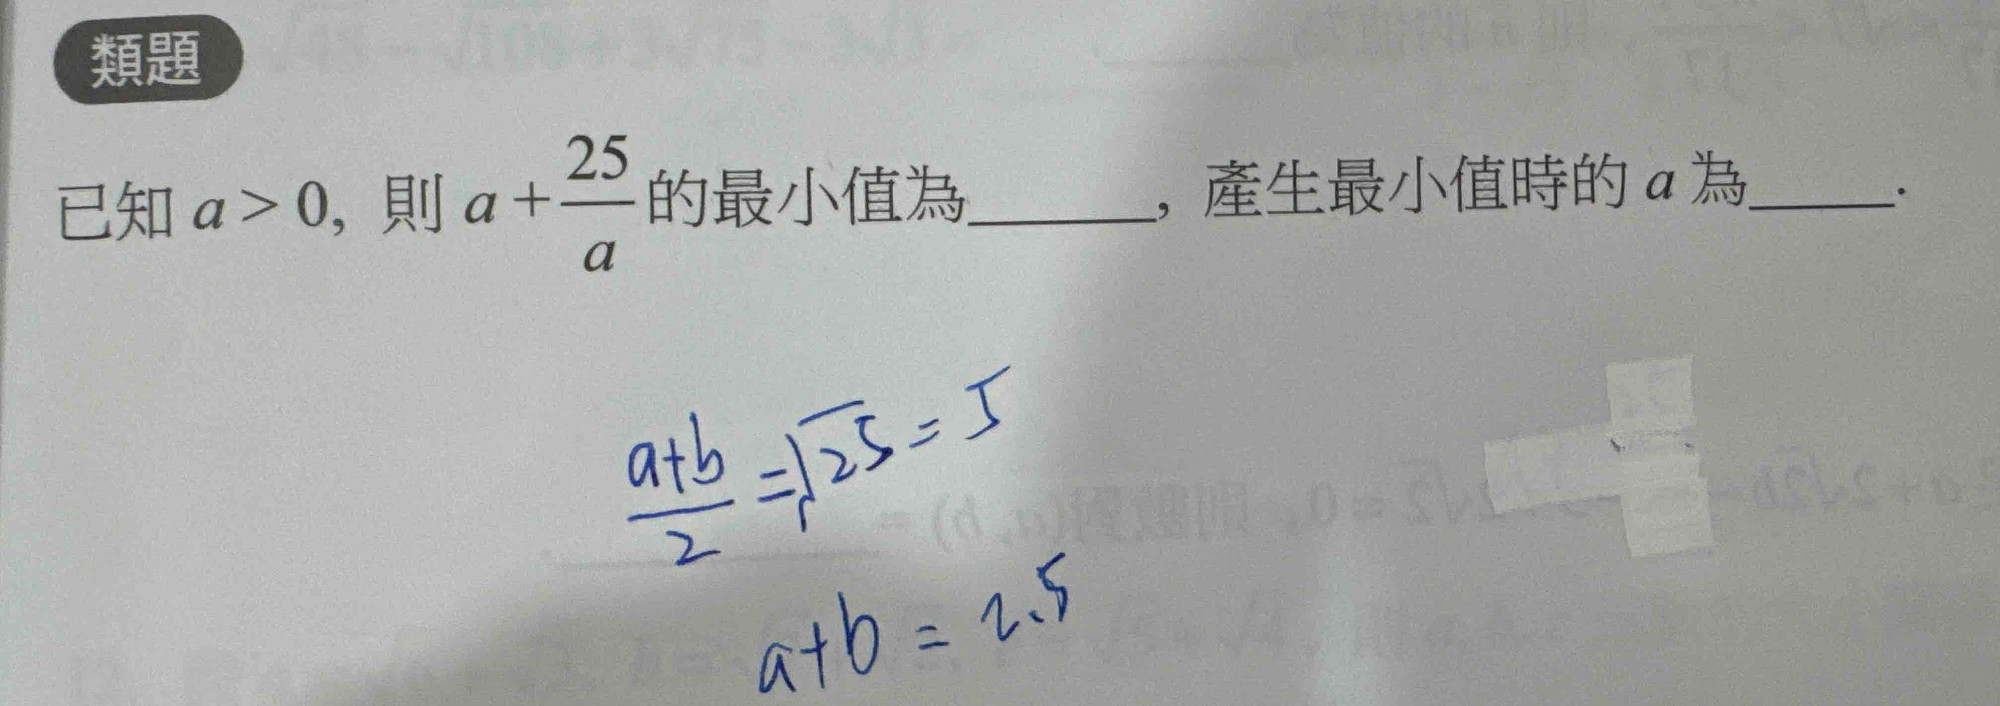 類題
已知 a > 0, 則 a + 25/a 的最小值為______, 產生最小值時的 a 為_____.
(a+b)/2 = √25 = 5
a+b = 2.5